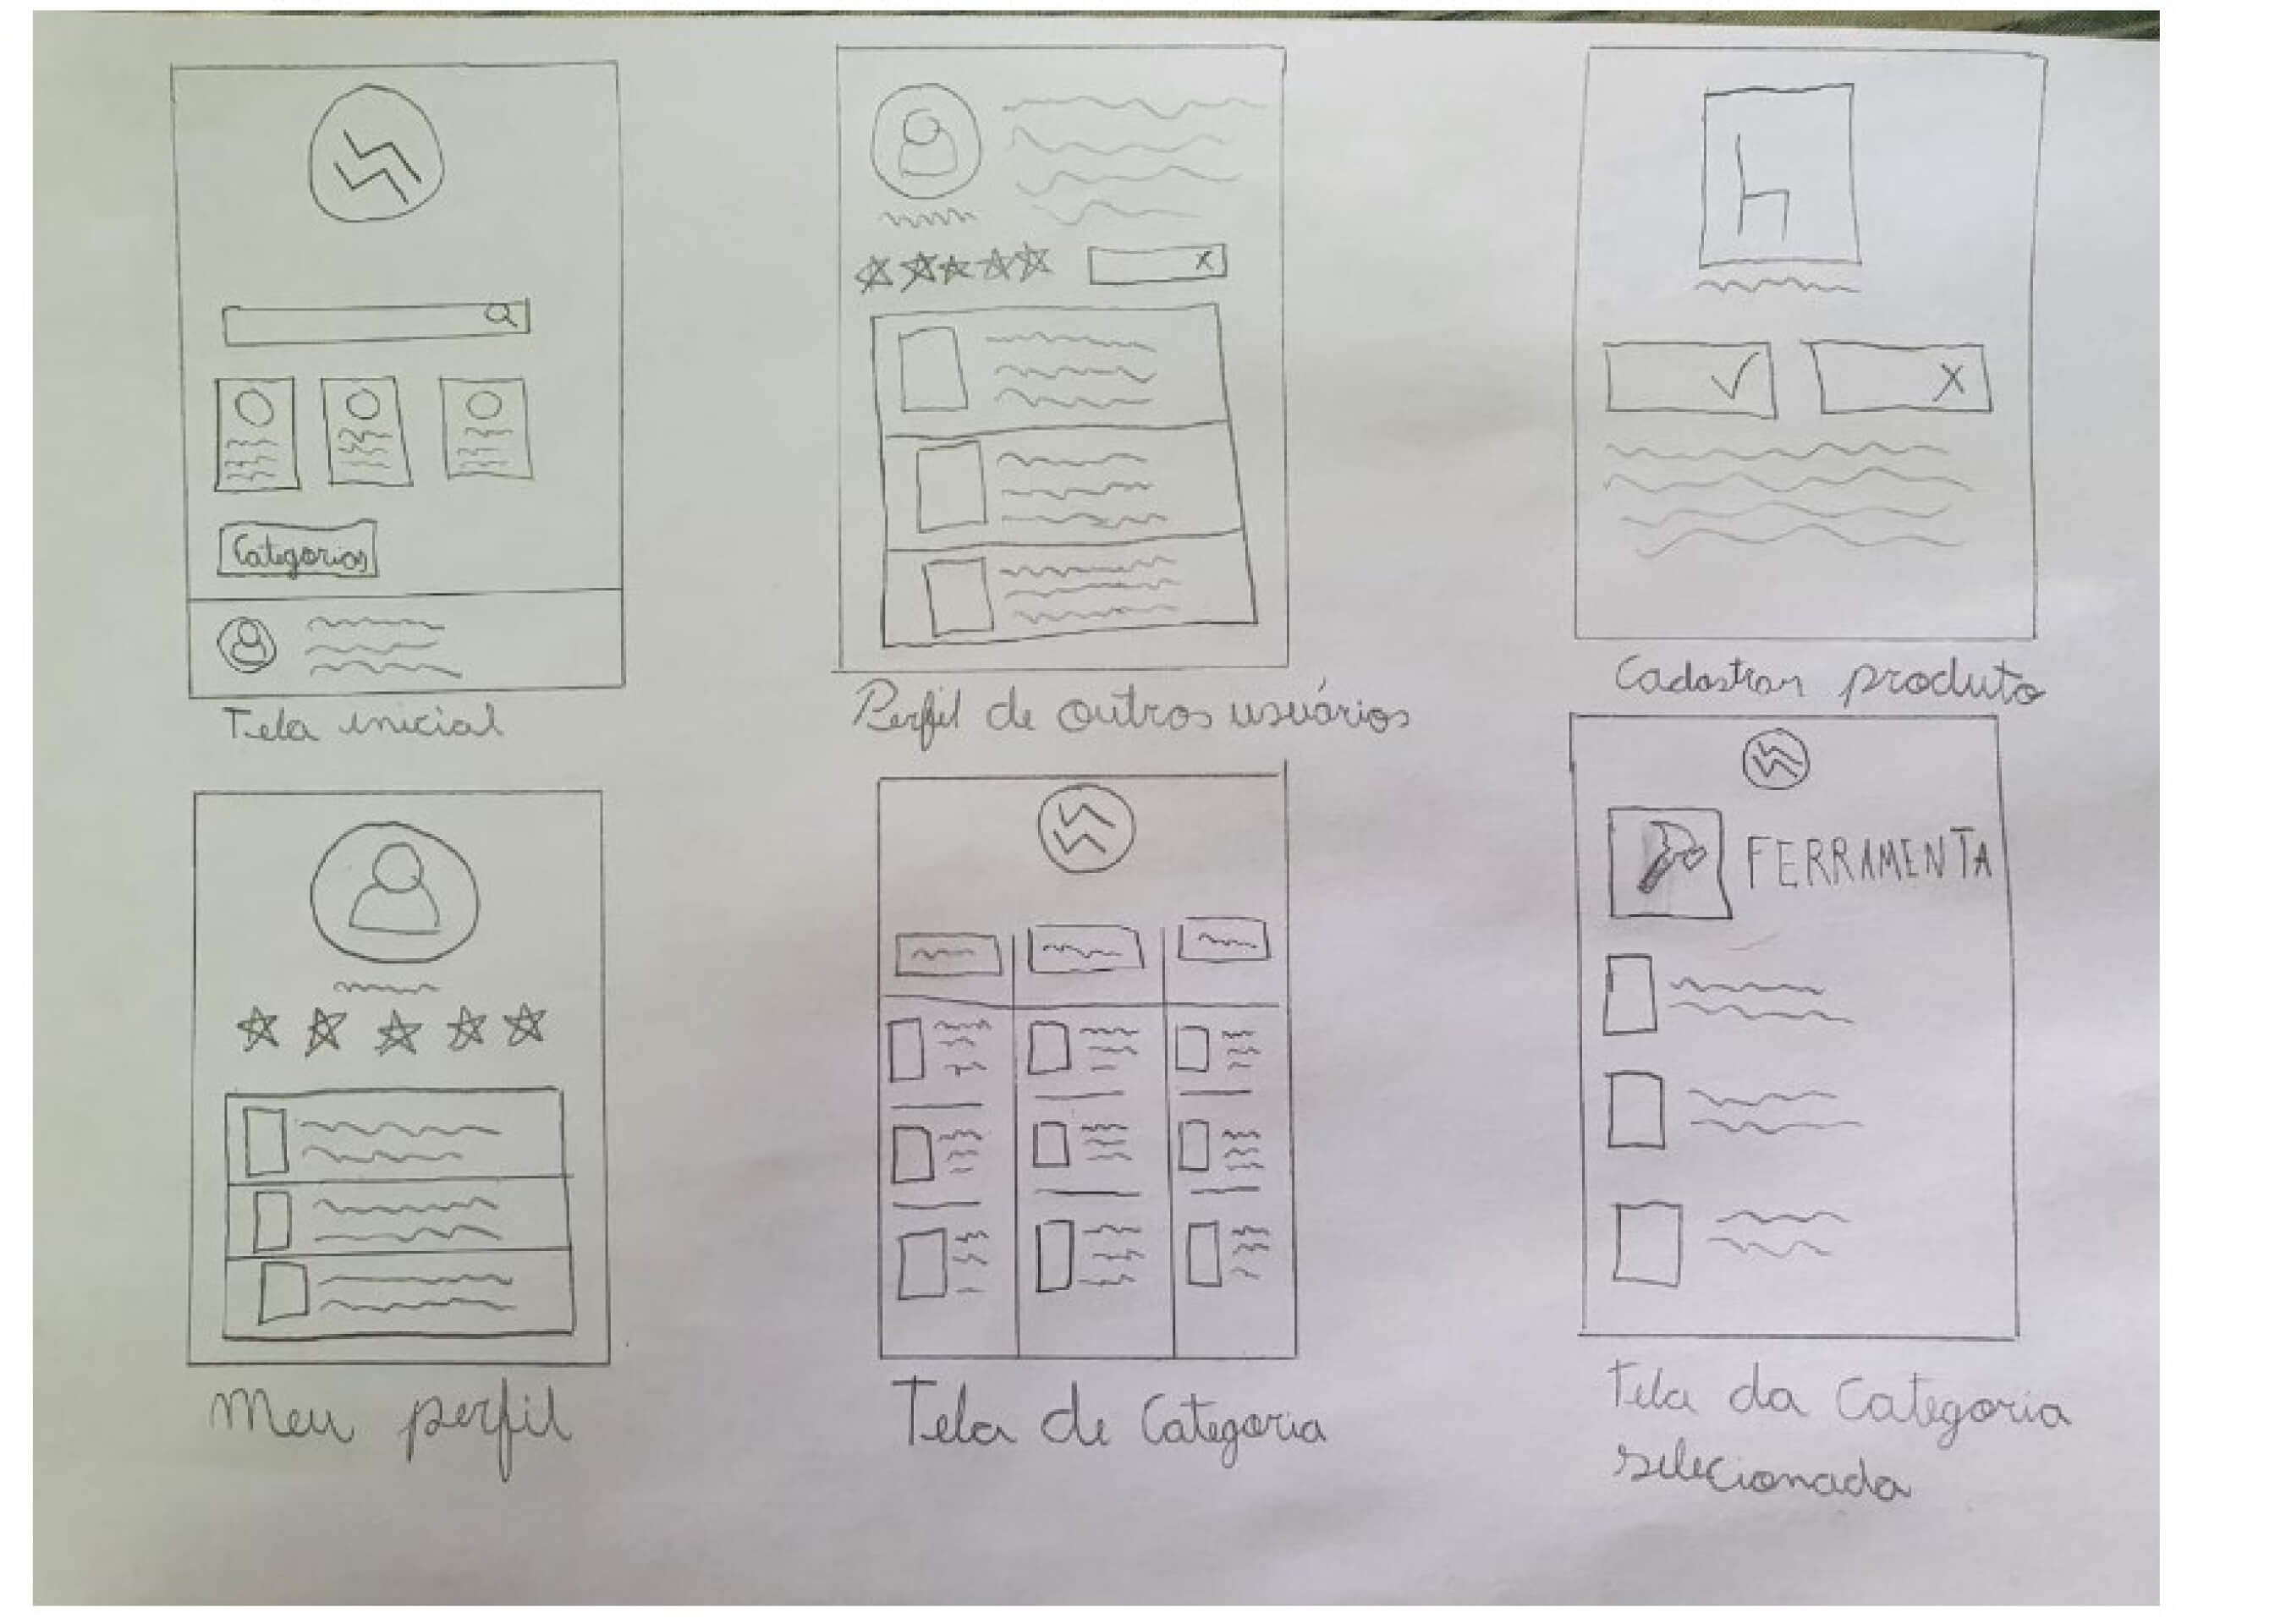 Categorias
Tela inicial
Perfil de outros usuários
Cadastrar produto
FERRAMENTA
Meu perfil
Tela de Categoria
Tela da Categoria
selecionada